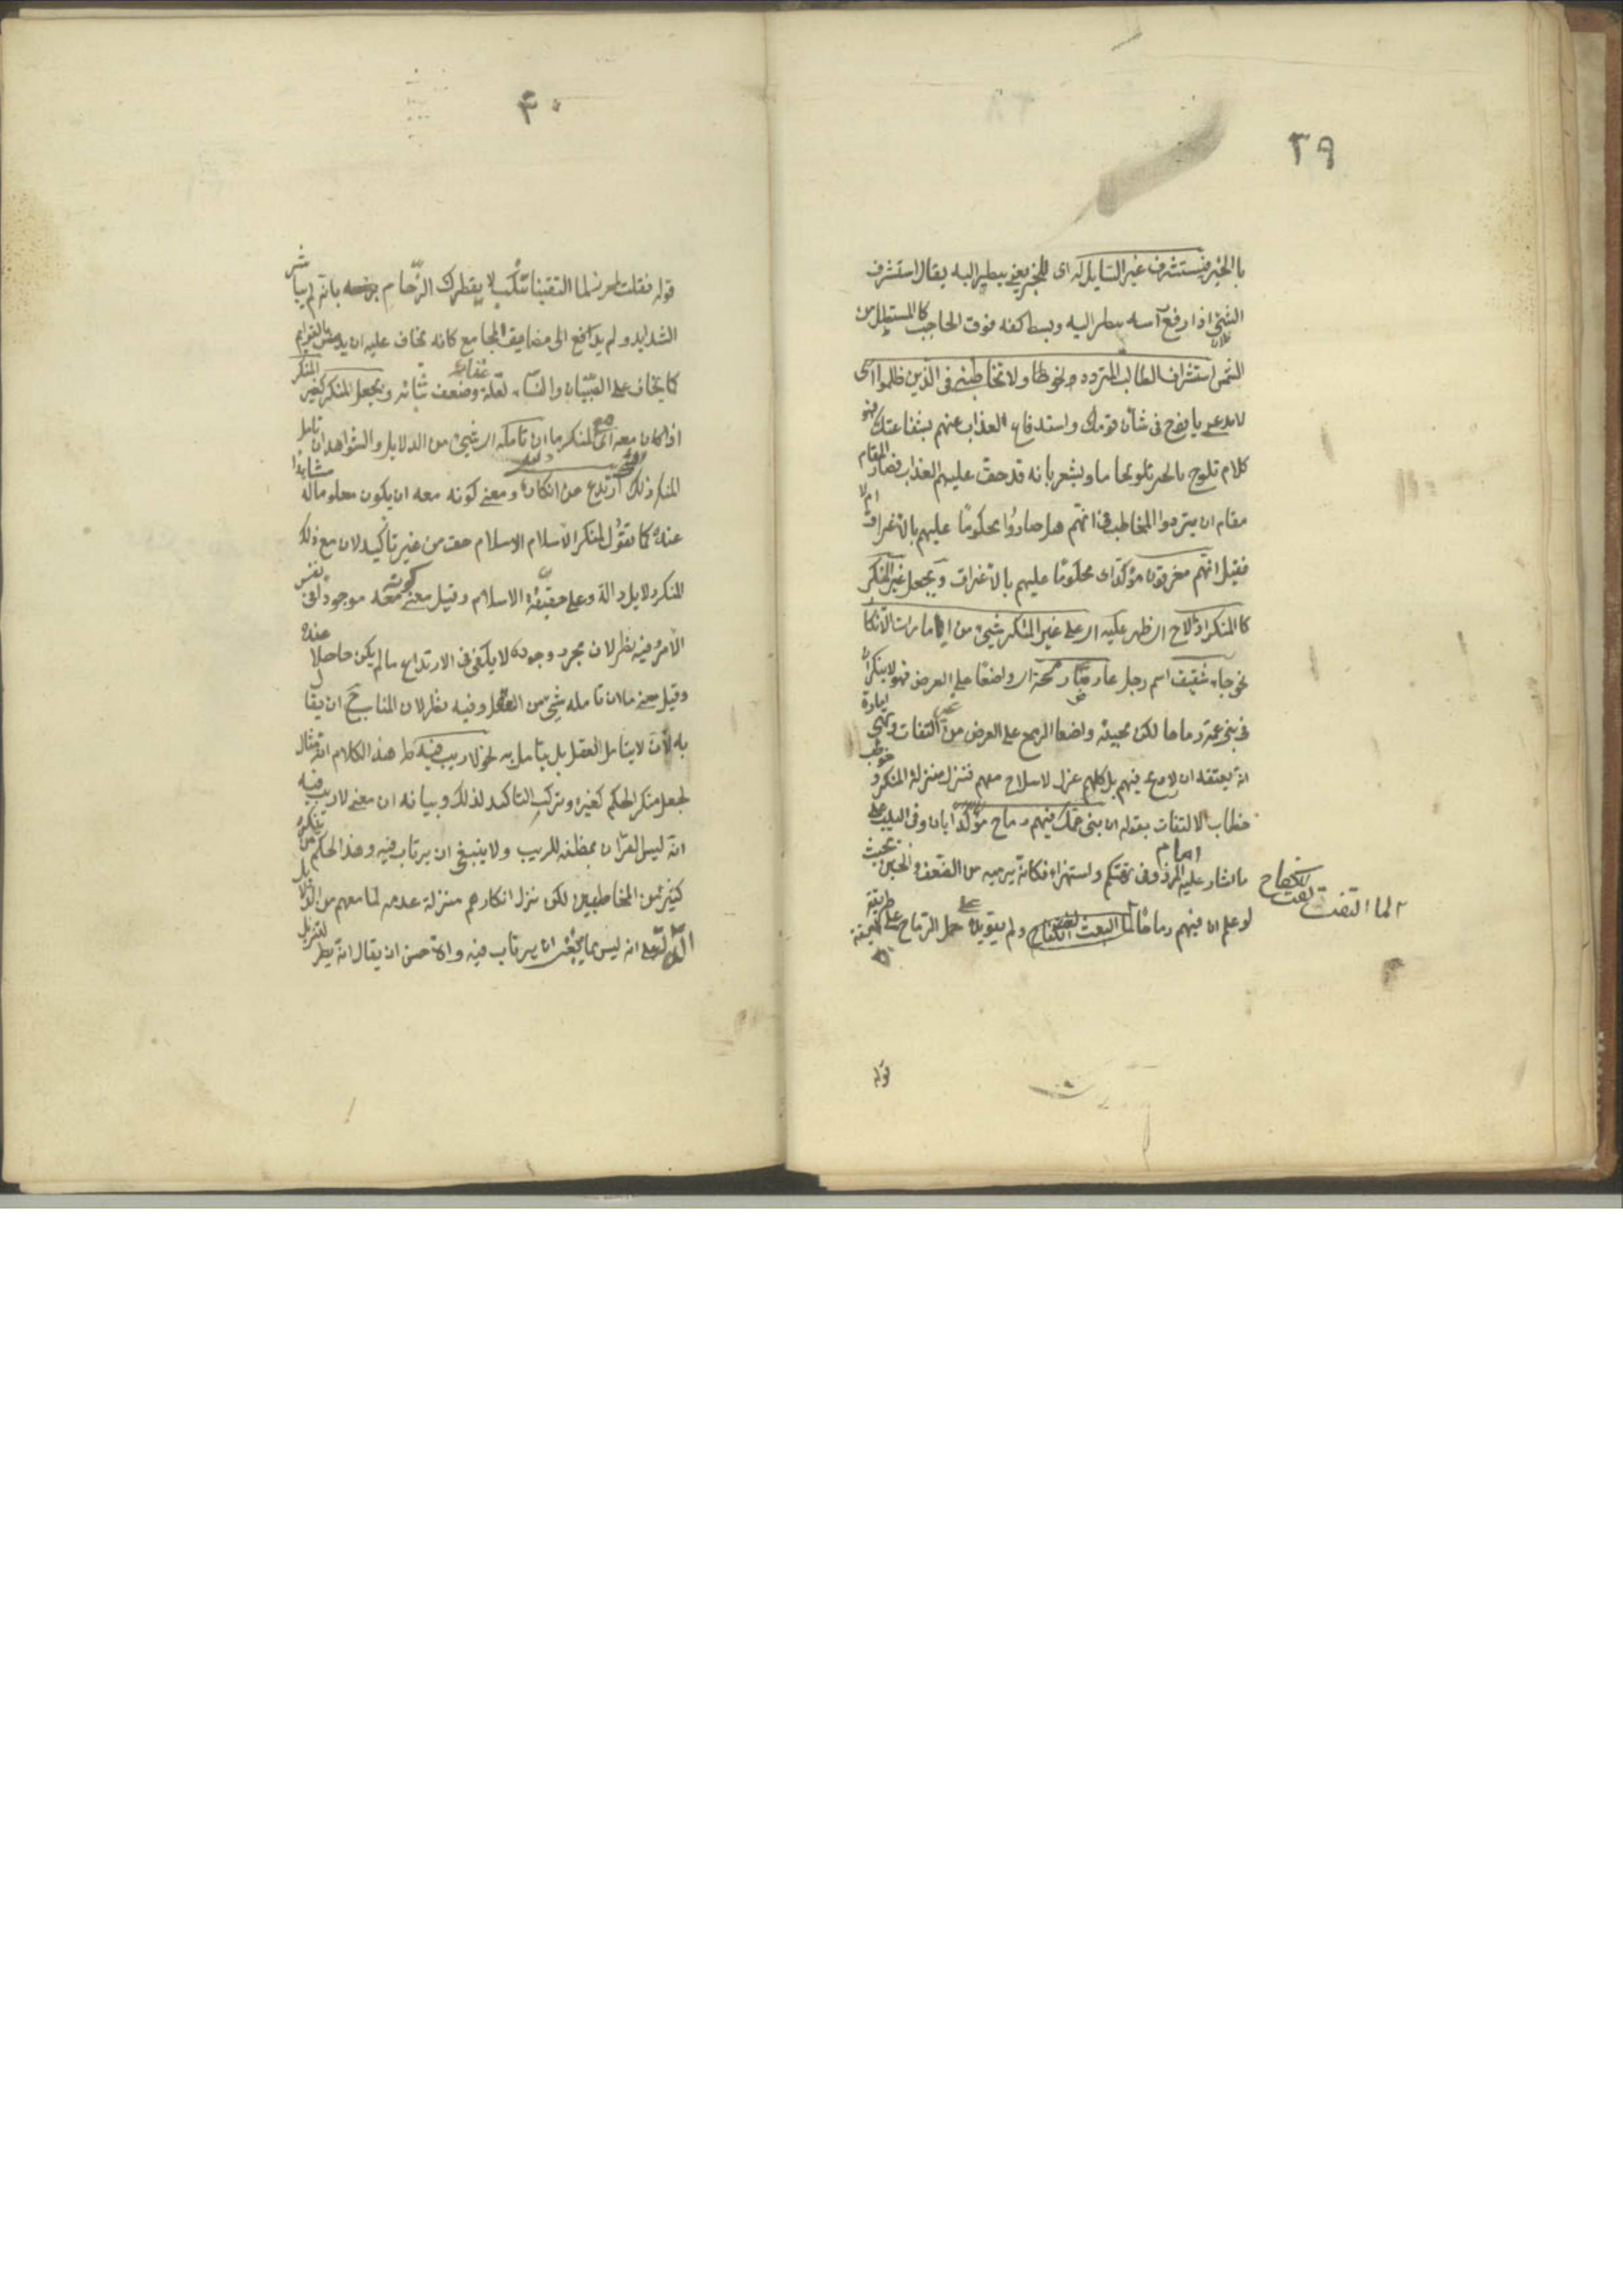 ٣٩
بالخبر فيستشرف غير السايل له اى للخبر يعنى ينظر اليه يقال استشرف
الشئ اذا رفع رأسه ينظر اليه وبسط كفه فوق الحاجب كالمستظل من
الشمس استشراف الطالب المتردد نحو ولا تخاطبنى فى الذين ظلموا اى
لا تدعنى يا نوح فى شان قومك واستدفاع العذاب عنهم بشفاعتك فهو
كلام يلوح بالخبر تلويحا ما ويشعر بانه قد حق عليهم العذاب فصار المقام
مقام ان يتردد المخاطب فى انهم هل صاروا محكوما عليهم بالاغراق ام لا
فقيل انهم مغرقون مؤكدا اى محكوما عليهم بالاغراق ويجعل غير المنكر
كالمنكر اذا لاح اى ظهر عليه اى على غير المنكر شئ من امارات الانكار
نحو جاء شقيق اسم رجل عارضا رمحه اى واضعا على العرض فهو لا ينكر ان
فى بنى عمه رماحا لكن مجيئه واضعا الرمح على العرض من غير التفات وتهيئ امارة
انه يعتقد ان لا رمح فيهم بل كلهم عزل لا سلاح معهم فنزل منزلة المنكر وخوطب
خطاب الالتفات بقوله ان بنى عمك فيهم رماح مؤكدا بان وفى البيت على
ما اشار عليه الامام المرزوقى تهكم واستهزاء فكانه يرميه من الضعف والجبن بحيث
لو علم ان فيهم رماحا لما التفت لفت الكفاح ولم يقو يده على حمل الرماح على طريقة
لما التفت لفت الكفاح
قوله
٤٠
قوله فقلت لمحرز لما التقينا تنكب لا يقطرك الزحام يرميه بانه لم يباشر
الشدايد ولم يدافع الى مضايق المجامع كانه يخاف عليه ان يداس بالقوايم
كما يخاف على الصبيان والنساء لقلة غنائه وضعف بنائه ويجعل المنكر كغير المنكر
اذا كان معه اى مع المنكر ما ان تامله اى شئ من الدلايل والشواهد ان تامل
المنكر ذلك ارتدع عن انكاره ومعنى كونه معه ان يكون معلوما له مشاهدا
عنده كما تقول لمنكر الاسلام الاسلام حق من غير تاكيد لان مع ذلك
المنكر دلايل دالة على حقيقة الاسلام وقيل معنى كونه معه موجود فى نفس
الامر وفيه نظر لان مجرد وجوده لا يكفى فى الارتداع ما لم يكن حاصلا عنده
وقيل معنى ما ان تامله شئ من العقل وفيه نظر لان المناسب ح ان يقال
به لانه لا يتامل العقل بل يتامل به نحو لا ريب فيه ظ هذا الكلام انه مثال
لجعل منكر الحكم كغيره وترك التاكيد لذلك وبيانه ان معنى لا ريب فيه
انه ليس القرآن بمظنة للريب ولا ينبغى ان يرتاب فيه وهذا الحكم مما ينكره
كثير من المخاطبين لكن نزل انكارهم منزلة عدمه لما معهم من الدلائل
الدالة على انه ليس مما ينبغى ان يرتاب فيه والاحسن ان يقال انه نظير لتنزيل